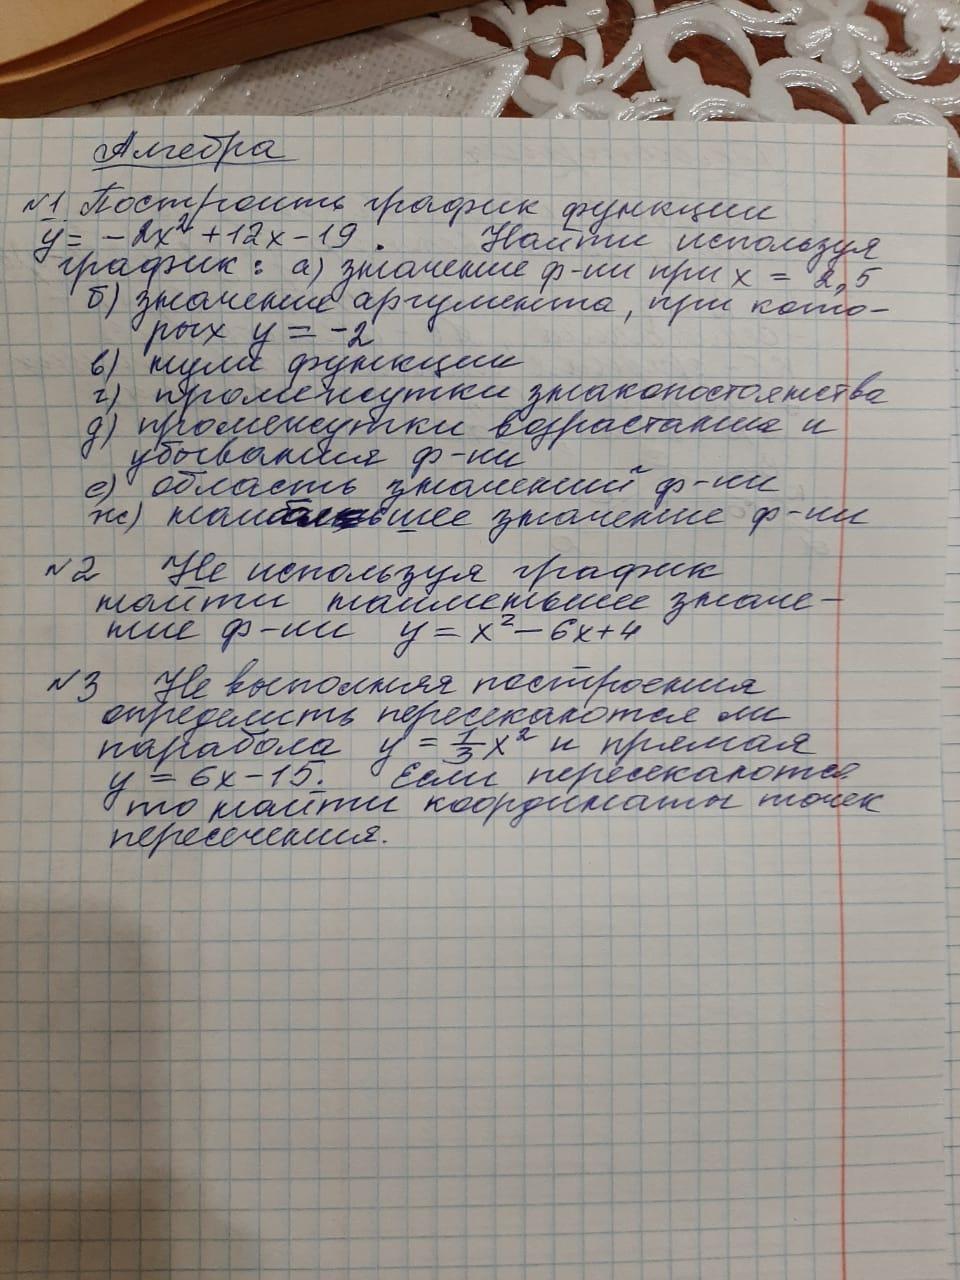 Алгебра
№1 Построить график функции
y = -2x² + 12x - 19. Найти используя
график: а) значение ф-ии при x = 2,5
б) значения аргумента, при кото-
рых y = -2
в) нули функции
г) промежутки знакопостоянства
д) промежутки возрастания и
убывания ф-ии
е) область значений ф-ии
ж) наибольшее значение ф-ии
№2 Не используя график
найти наименьшее значе-
ние ф-ии y = x² - 6x + 4
№3 Не выполняя построения
определить пересекаются ли
парабола y = 1/3 x² и прямая
y = 6x - 15. Если пересекаются
то найти координаты точек
пересечения.